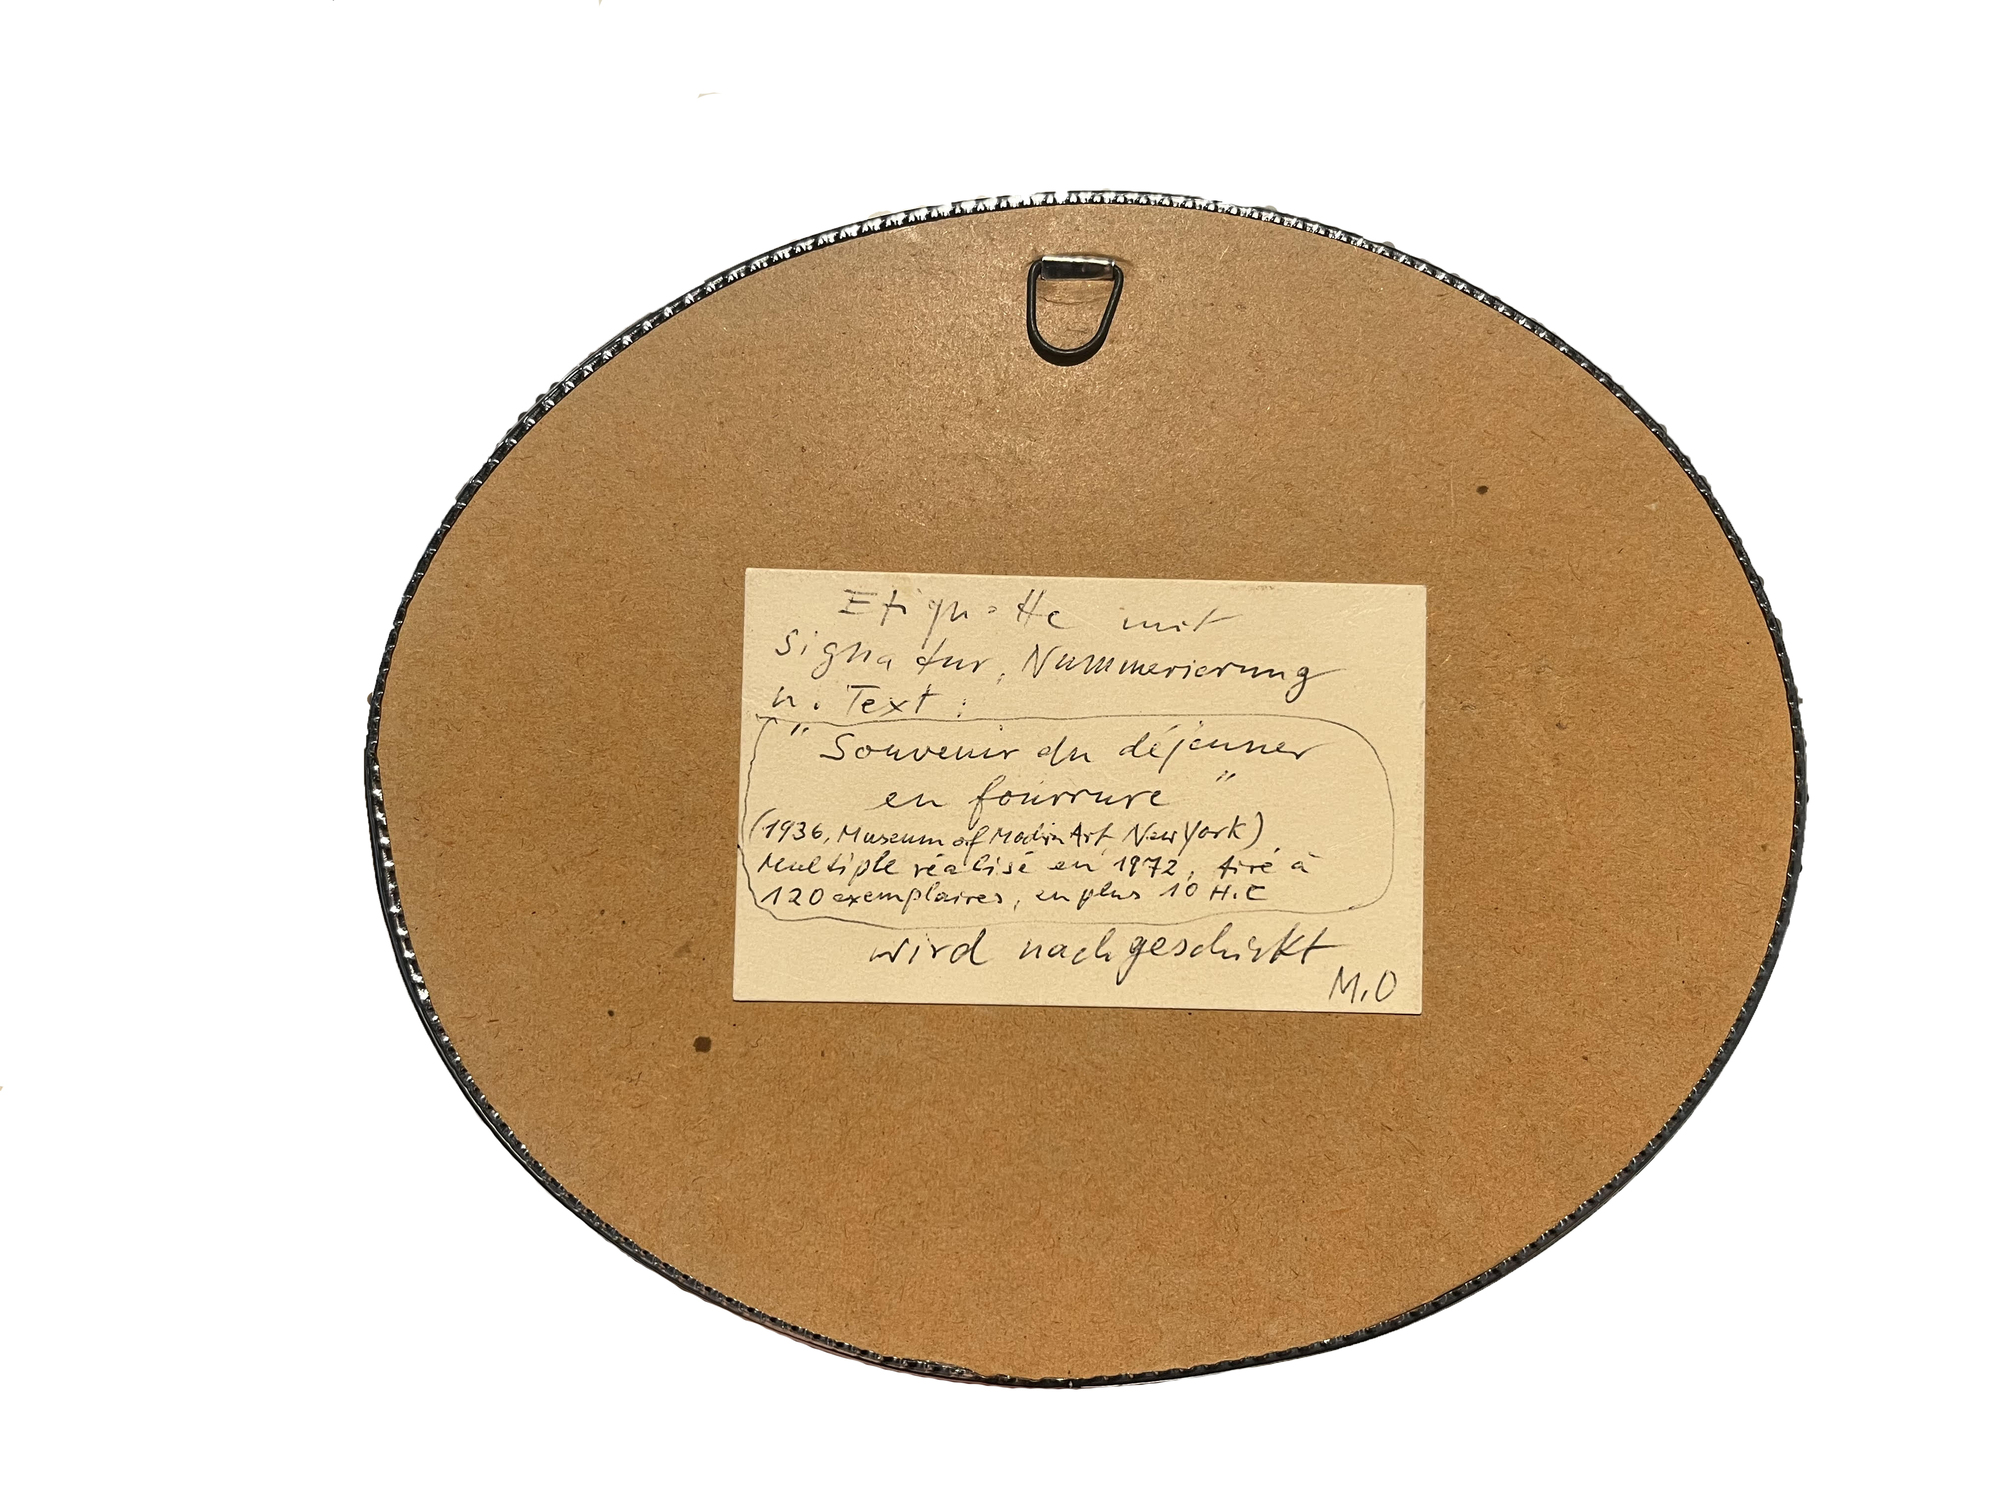 Etiquette mit
Signatur, Nummerierung
u. Text:
"Souvenir du déjeuner
en fourrure"
(1936, Museum of Modern Art New York)
Multiple réalisé en 1972, tiré à
120 exemplaires, en plus 10 H.C
wird nachgeschickt
M.O